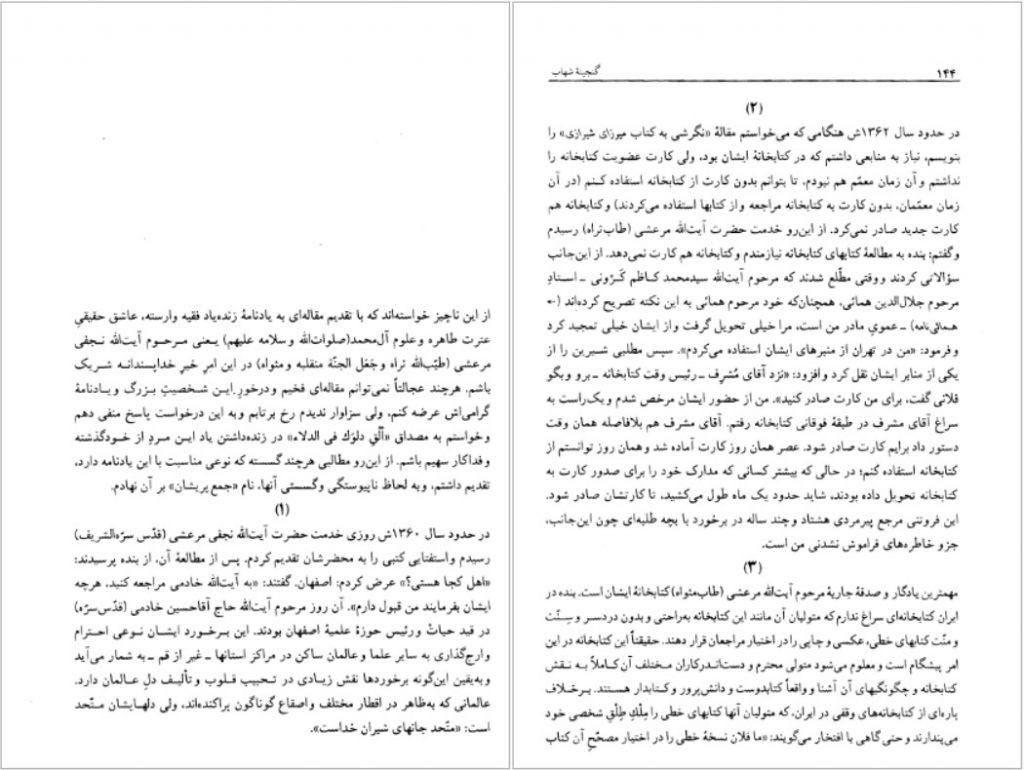 از این ناچیز خواسته‌اند که با تقدیم مقاله‌ای به یادنامهٔ زنده‌یاد فقیه وارسته، عاشق حقیقیِ
عترت طاهره و علوم آل‌محمد(صلوات‌الله و سلامه علیهم) یـعنی مـرحـوم آیت‌الله نـجفی
مرعشی (طیّب‌الله ثراه و جَعَل الجنّة منقلبه و مثواه) در این امرِ خیرِ خداپسندانـه شـریک
باشم. هرچند عجالتاً نمی‌توانم مقاله‌ای فخیم و درخورِ ایـن شـخصیتِ بـزرگ و یـادنامهٔ
گرامی‌اش عرضه کنم، ولی سزاوار ندیدم رخ برتابم و به این درخواست پاسخ منفی دهم
و خواستم به مصداق «اَلْقِ دلوَك فی الدلاء» در زنده‌داشتن یاد ایـن مـردِ از خـودگذشته
و فداکار سهیم باشم. از این‌رو مطالبی هرچند گسسته که نوعی مناسبت با این یادنامه دارد،
تقدیم داشتم، و به لحاظ ناپیوستگی و گسستی آنها، نام «جمع پریشان» بر آن نهادم.
(۱)
در حدود سال ۱۳۶۰ش روزی خدمت حضرت آیت‌الله نجفی مرعشی (قدّس سرّه‌الشریف)
رسیدم و استفتایی کتبی را به محضرشان تقدیم کردم. پس از مطالعهٔ آن، از بنده پرسیدند:
«اهل کجا هستی؟» عرض کردم: اصفهان. گفتند: «به آیت‌الله خادمی مراجعه کنید، هرچه
ایشان بفرمایند من قبول دارم». آن روز مرحوم آیت‌الله حاج آقاحسین خادمی (قدّس‌سرّه)
در قید حیاتْ و رئیس حوزهٔ علمیهٔ اصفهان بودند. این بـرخورد ایشـان نـوعی احـترام
و ارج‌گذاری به سایر علما و عالمان ساکن در مراکز استانها ـ غیر از قم ـ به شمار می‌آید
و به‌یقین این‌گونه برخوردها نقش زیـادی در تـحبیب قـلوب و تألیـف دلِ عـالمان دارد.
عالمانی که به‌ظاهر در اقطار مختلف و اصقاع گوناگون پراکنده‌اند، ولی دلهـایشان مـتّحد
است: «متّحد جانهای شیران خداست».
۱۴۴
گنجینهٔ شهاب
(۲)
در حدود سال ۱۳۶۲ش هنگامی که می‌خواستم مقالهٔ «نگرشی به کتاب میرزای شیرازی» را
بنویسم، نیاز به منابعی داشتم که در کتابخانهٔ ایشان بود، ولی کارت عضویت کتابخانه را
نداشتم و آن زمان معمّم هم نبودم، تا بتوانم بدون کارت از کتابخانه استفاده کـنم (در آن
زمان معمّمان، بدون کارت به کتابخانه مراجعه و از کتابها استفاده می‌کردند) و کتابخانه هم
کارت جدید صادر نمی‌کرد. از این‌رو خدمت حضرت آیت‌الله مرعشی (طاب‌ثراه) رسیدم
و گفتم: بنده به مطالعهٔ کتابهای کتابخانه نیازمندم و کتابخانه هم کارت نمی‌دهد. از این‌جانب
سؤالاتی کردند و وقتی مطّلع شدند که مرحوم آیت‌الله سیدمحمد کـاظم کَـرْوَنی ـ اسـتادِ
مرحوم جلال‌الدین همائی، همچنان‌که خود مرحوم همائی به این نکته تصریح کرده‌اند (←
همائی‌نامه) ـ عمویِ مادر من است، مرا خیلی تحویل گرفت و از ایشان خیلی تمجید کرد
و فرمود: «من در تهران از منبرهای ایشان استفاده می‌کردم». سپس مطلبی شـیرین را از
یکی از منابر ایشان نقل کرد و افزود: «نزد آقای مُشرِف ـ رئیس وقت کتابخانه ـ برو و بگو
فلانی گفت، برای من کارت صادر کنید». من از حضور ایشان مرخص شدم و یک‌راست به
سراغ آقای مشرف در طبقهٔ فوقانی کتابخانه رفتم. آقای مشرف هم بلافاصله همان وقت
دستور داد برایم کارت صادر شود. عصر همان روز کارت آماده شد و همان روز توانستم از
کتابخانه استفاده کنم؛ در حالی که بیشتر کسانی که مدارک خود را برای صدور کارت به
کتابخانه تحویل داده بودند، شاید حدود یک ماه طول می‌کشید، تا کارتشان صادر شود.
این فروتنی مرجع پیرمردی هشتاد و چند ساله در برخورد با بچه طلبه‌ای چون این‌جانب،
جزو خاطره‌های فراموش نشدنی من است.
(۳)
مهمترین یادگار و صدقهٔ جاریهٔ مرحوم آیت‌الله مرعشی (طاب‌مثواه) کتابخانهٔ ایشان است. بنده در
ایران کتابخانه‌ای سراغ ندارم که متولیان آن مانند این کتابخانه به‌راحتی و بدون دردسـر و سِـنَّت
و منّت کتابهای خطی، عکسی و چاپی را در اختیار مراجعان قرار دهند. حقیقتاً این کتابخانه در این
امر پیشگام است و معلوم می‌شود متولی محترم و دست‌اندرکاران مختلف آن کـاملاً بـه نـقش
کتابخانه و چگونگیهای آن آشنا و واقعاً کتابدوست و دانش‌پرور و کـتابدار هسـتند. بـرخلاف
پاره‌ای از کتابخانه‌های وقفی در ایران، که متولیان آنها کتابهای خطی را مِلْكِ طِلْقِ شخصی خود
می‌پندارند و حتی گاهی با افتخار می‌گویند: «ما فلان نسخهٔ خطی را در اختیار مصحّح آن کتاب